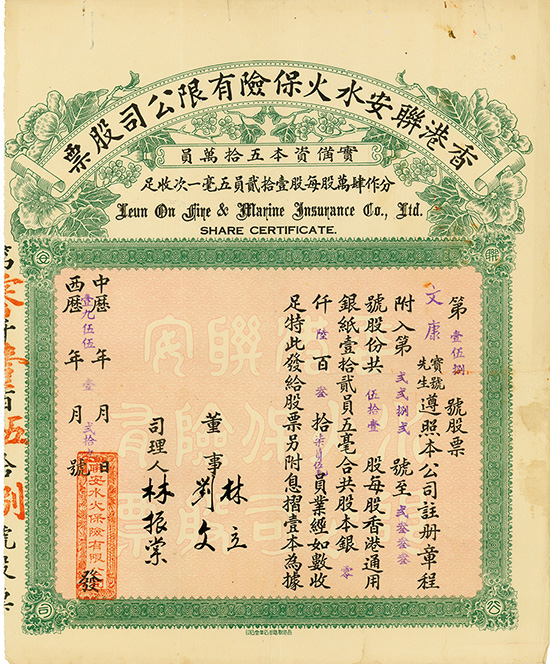 香港聯安水火保險有限公司股票
實備資本五拾萬員
分作肆萬股每股壹拾貳員五毫一次收足
Leun On Fire & Marine Insurance Co., Ltd.
SHARE CERTIFICATE.
聯
安
公
司
第壹伍捌號股票
文康寶號先生遵照本公司註册章程
附入第弍弍捌弍號至弍叁叁
號股份共伍拾壹股每股香港通用
銀紙壹拾貳員五毫合共股本銀零
仟陸百叁拾柒員業經如數收
足特此發給股票另附息摺壹本為據
董事林立
劉文
司理人林振棠
中歷年月日
西歷壹九伍伍年壹月弍拾號發
安水火保險有限公
聯安
水火保險有限公司股票
百伍拾捌號股票